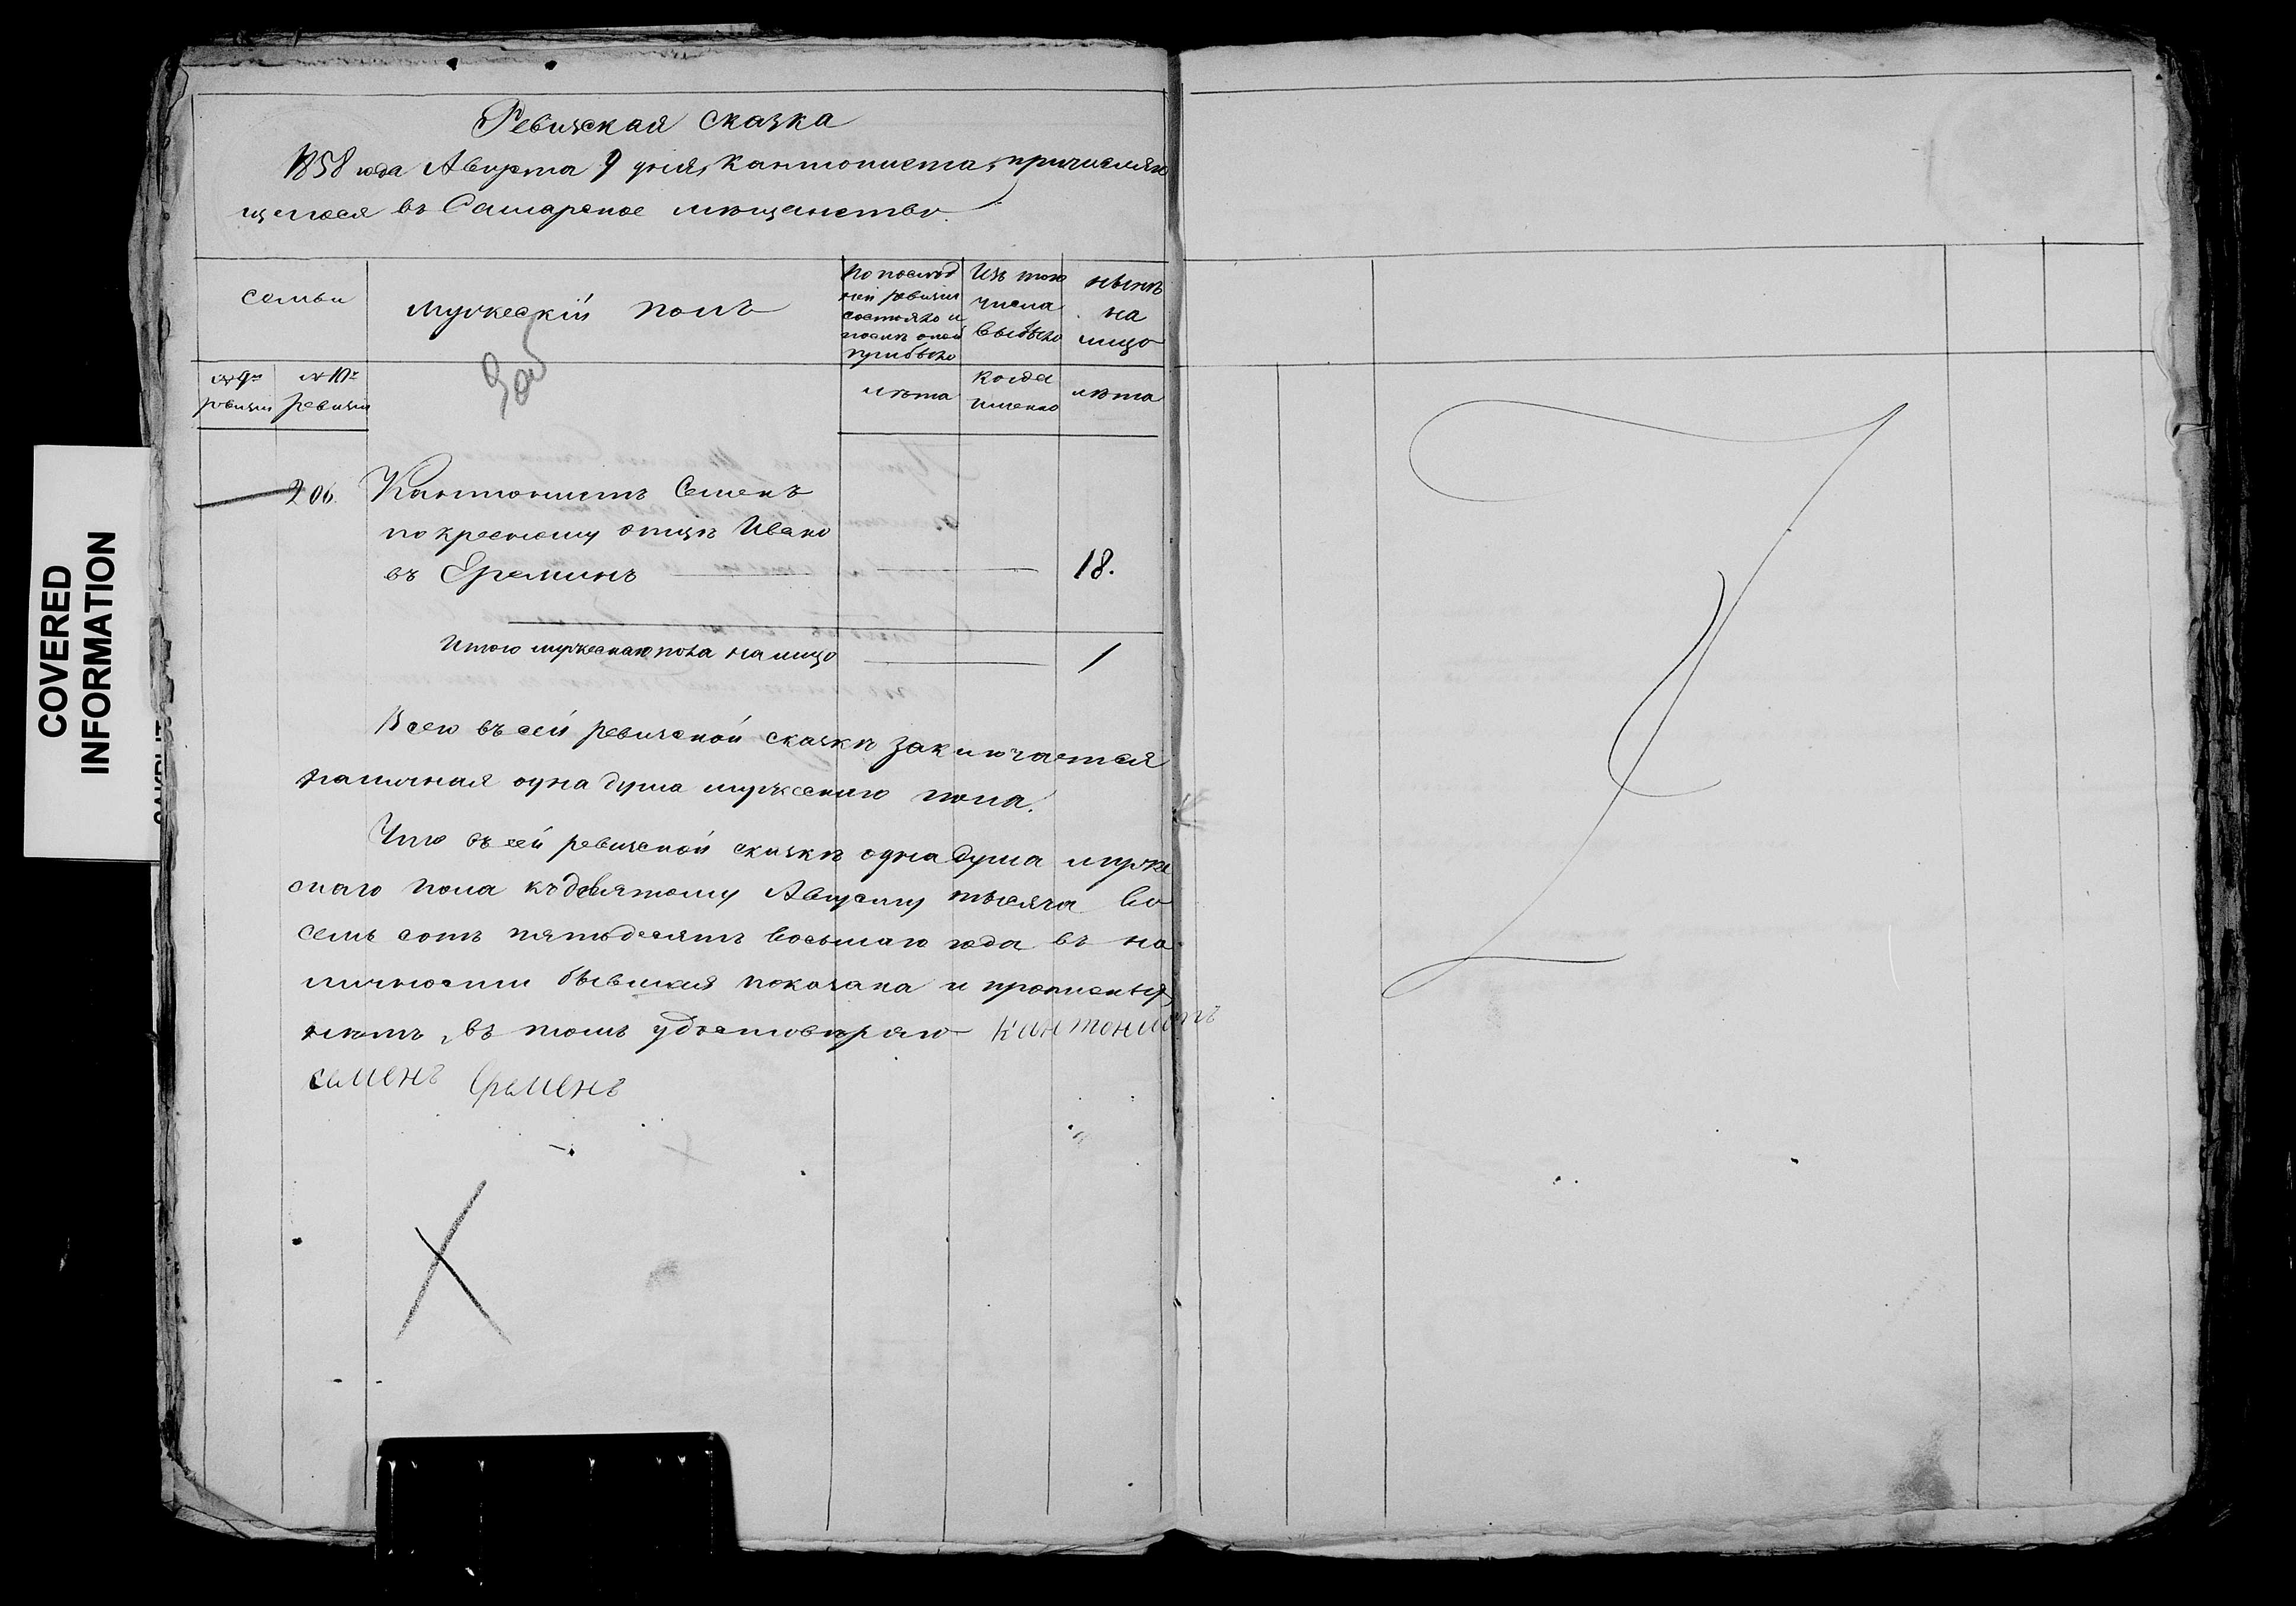 Ревижская сказка
1858 года Августа 9 дня, Кантониста, причисляю
щегося въ Самарское мѣщанство.
Семьи
Мужескій полъ
По послѣд
ней ревизіи
состояло и
послѣ оной
прибыло
Изъ того
числа
выбыло
Нынѣ
на
лицо
№ 9й
ревизіи
№ 10й
ревизіи
лѣта
Когда
именно
лѣта
206.
Кантонистъ Семенъ
по крестному отцѣ Ивано
въ Ереминъ
18.
Итого мужескаго пола на лицо
1
Всего въ сей ревизской сказкѣ заключается
наличная одна душа мужескаго пола.
Что въ сей ревизской сказкѣ одна душа муже
скаго пола къ девятому Августу тысяча во
семь сотъ пятьдесятъ восьмаго года въ на
личности бывшая показана и прописныхъ
нѣтъ, въ томъ удостовѣряю Кантонистъ
Семенъ Еременъ
COVERED
INFORMATION